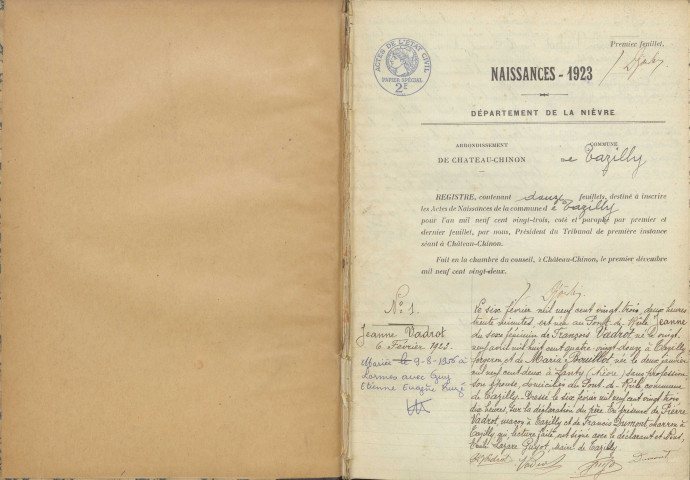 Premier feuillet.
ACTES DE L'ETAT CIVIL
PAPIER SPÉCIAL
2F
NAISSANCES - 1923
DÉPARTEMENT DE LA NIÈVRE
ARRONDISSEMENT
DE CHATEAU-CHINON
COMMUNE
de Tazilly
REGISTRE, contenant deux feuillets, destiné à inscrire
les Actes de Naissances de la commune de Tazilly
pour l'an mil neuf cent vingt-trois, coté et paraphé par premier et
dernier feuillet, par nous, Président du Tribunal de première instance
séant à Château-Chinon.
Fait en la chambre du conseil, à Château-Chinon, le premier décembre
mil neuf cent vingt-deux.
N° 1.
Jeanne Vadrot
6 Février 1923
Mariée le 9-8-1956 à
Lormes avec Guy
Etienne Eugène
Le six février mil neuf cent vingt trois, deux heures
trente minutes, est née au Pont-de- Jeanne
du sexe féminin de François Vadrot, né le vingt
neuf avril mil huit cent quatre vingt deux à Tazilly
forgeron et de Maria Bouillot née le deux janvier
mil neuf cent deux à Lanty (Nièvre) sans profession
son épouse, domiciliés du Pont-de- commune
de Tazilly. Dressé le six février mil neuf cent vingt trois
dix heures, sur la déclaration du père. En présence de Pierre
Vadrot, maçon à Tazilly et de Francis Dumont, charron à
Tazilly qui, lecture faite ont signé avec le déclarant et Nous,
Lazare Guyot, Maire de Tazilly.
Vadrot Vadrot Dumont